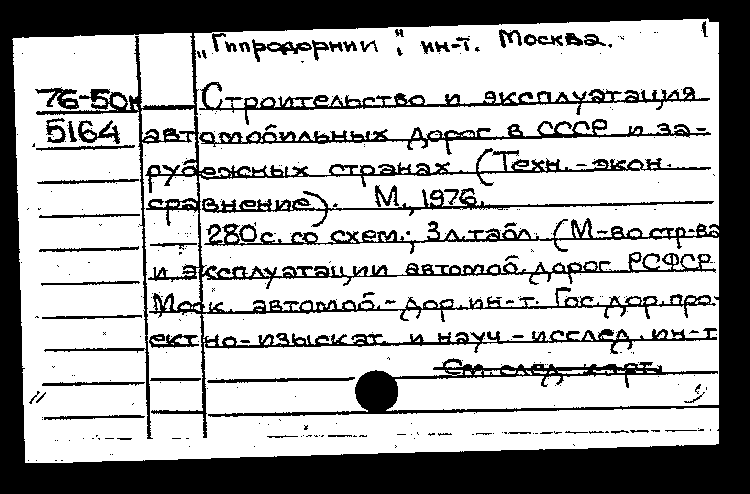 „Гипродорнии", ин-т. Москва.
76-50н Строительство и эксплуатация
5164 автомобильных дорог в СССР и за-
рубежных странах. (Техн.-экон.
сравнение). М., 1976.
280с. со схем.; 3л.табл. (М-во стр-ва
и эксплуатации автомоб. дорог РСФСР
Моск. автомоб.-дор. ин-т. Гос. дор. про-
ектно-изыскат. и науч-исслед. ин-т
См. след. карт.